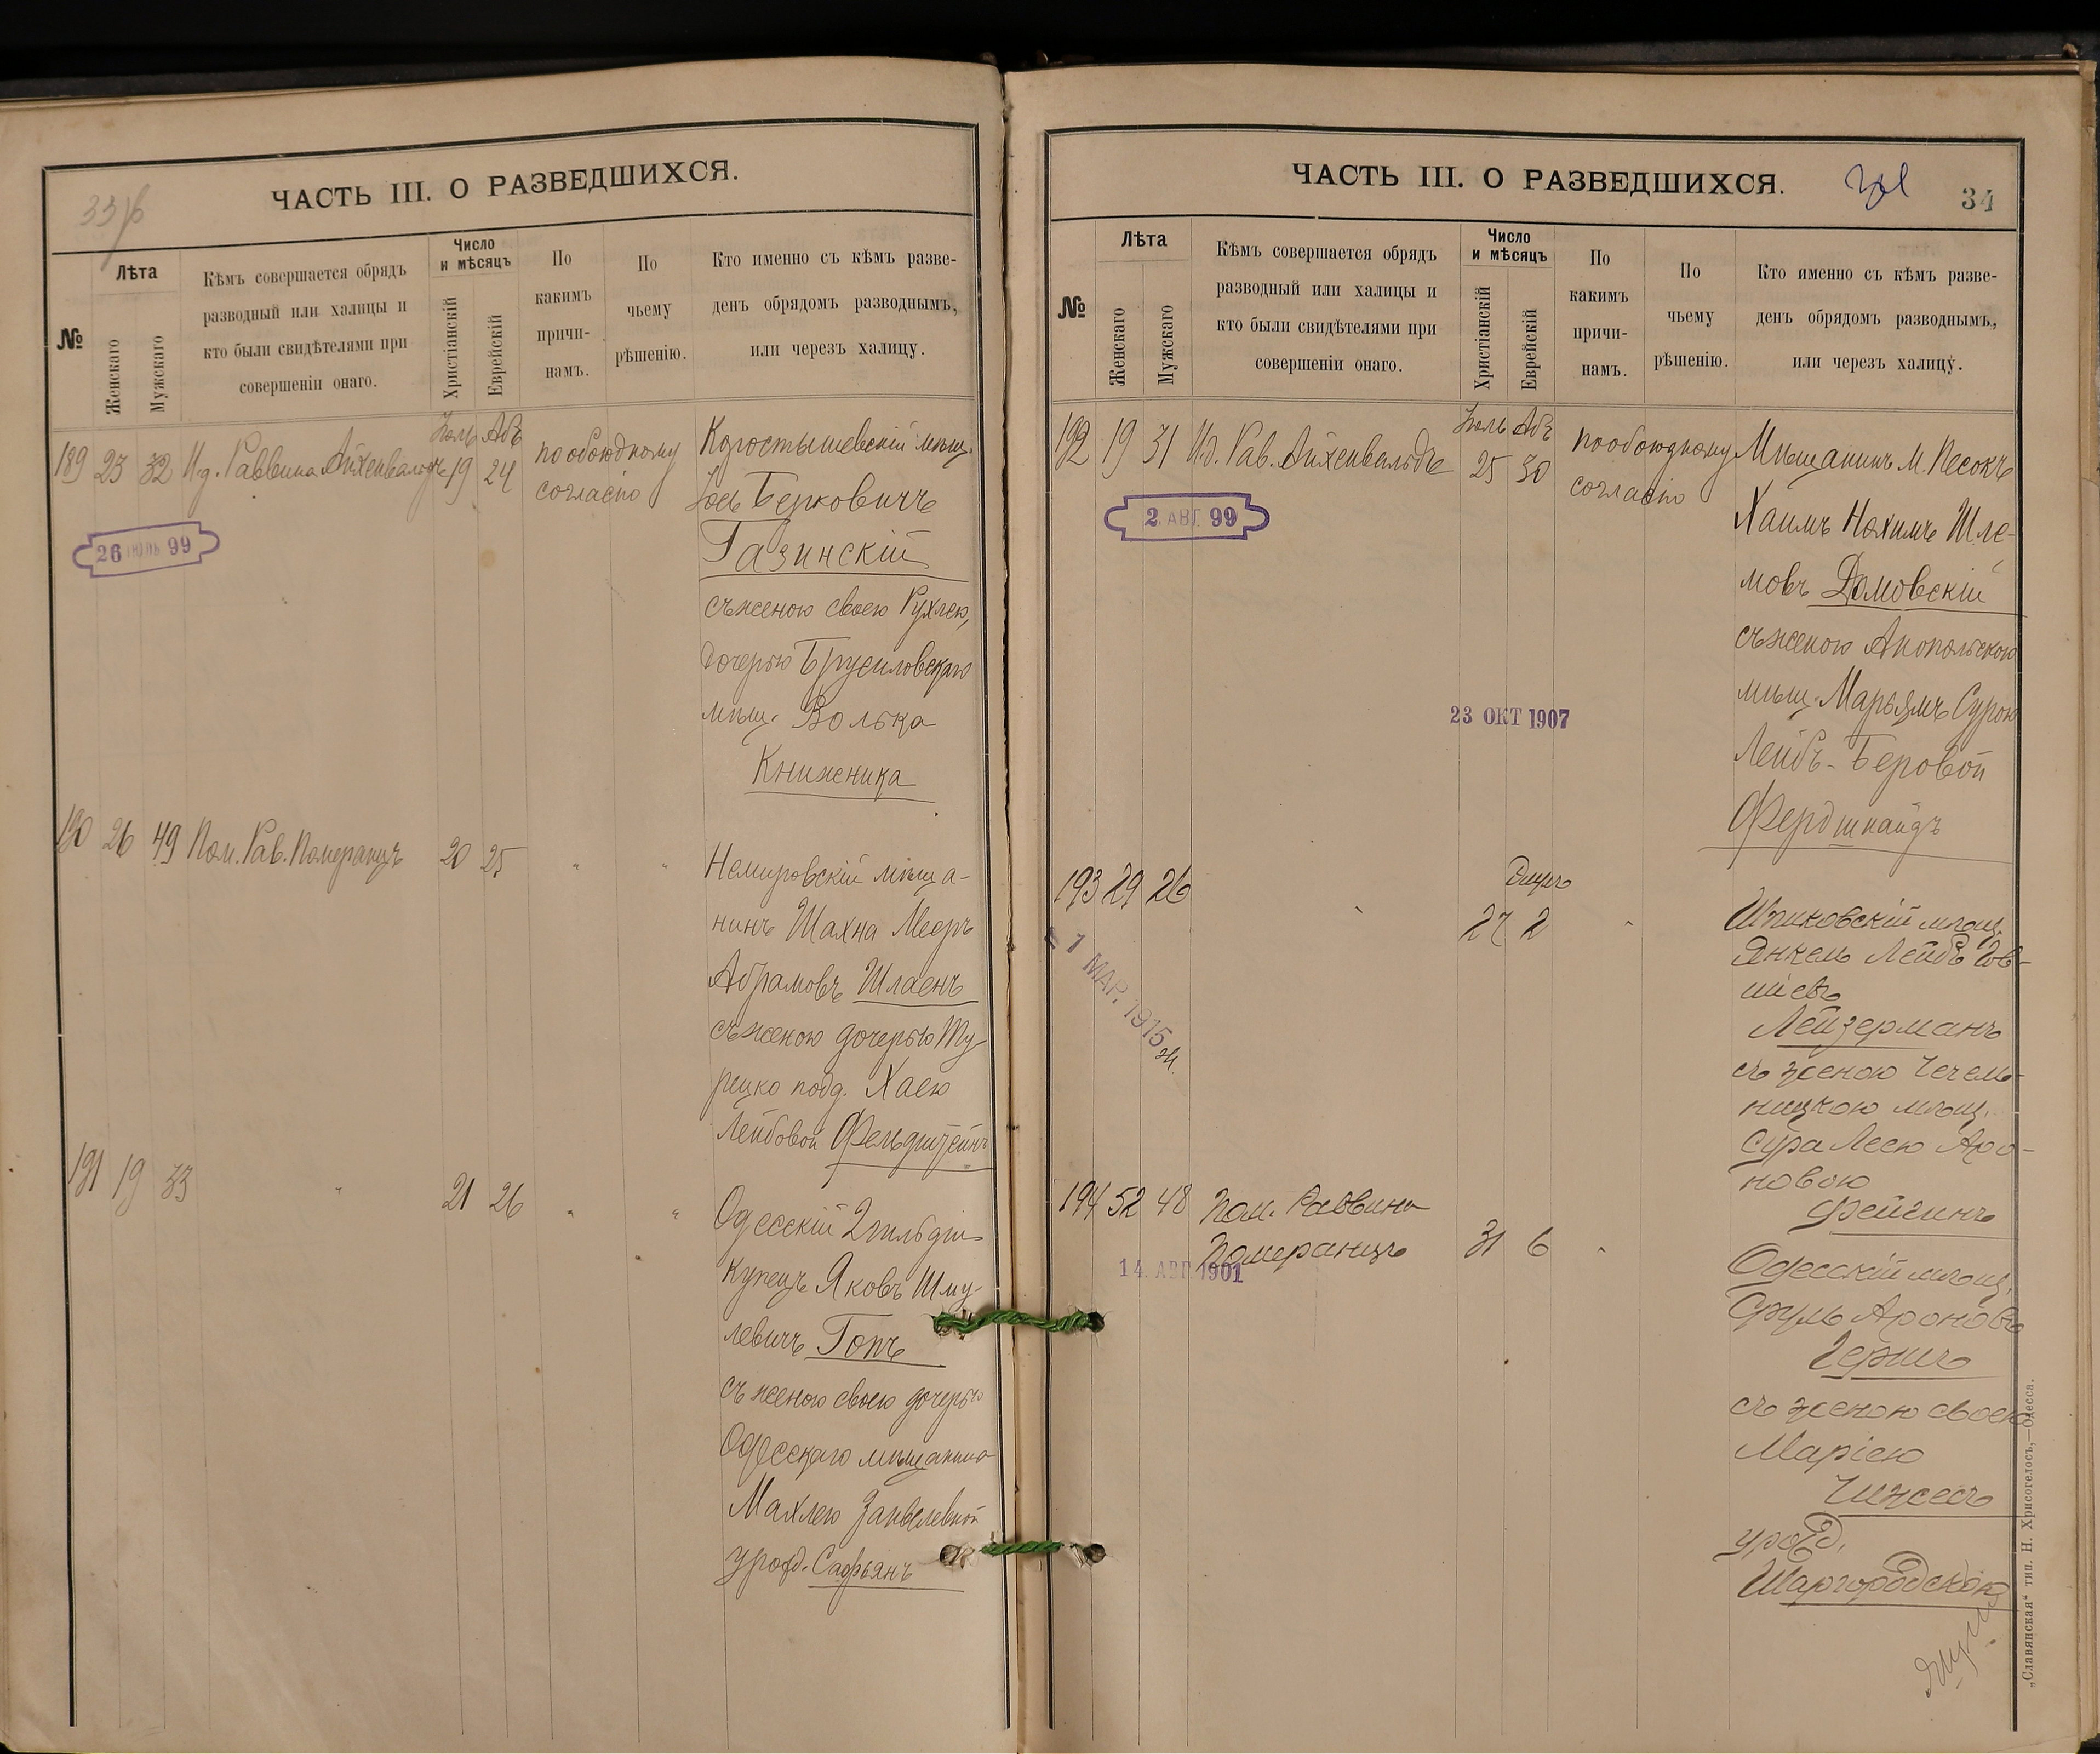 33 об
ЧАСТЬ III. О РАЗВЕДШИХСЯ.
№
Лѣта
Женскаго
Мужскаго
Кѣмъ совершается обрядъ
разводный или халицы и
кто были свидѣтелями при
совершеніи онаго.
Число
и мѣсяцъ
Христіанскій
Еврейскій
По
какимъ
причи-
намъ.
По
чьему
рѣшенію.
Кто именно съ кѣмъ разве-
денъ обрядомъ разводнымъ,
или черезъ халицу.
Іюль Абъ
189 23 32 И.д. Раввина Айхенвальдъ 19 24
по обоюдному
согласію
Коростышевскій мѣщ.
Іось Берковичъ
Газинскій
съ женою своею Рухлею,
дочерью Брусиловскаго
мѣщ. Волька
Книжника
26 ІЮЛЬ 99
190 26 49 Пом. Рав. Померанцъ 20 25 " "
Немировскій мѣща-
нинъ Шахна Мееръ
Абрамовъ Шлаенъ
съ женою дочерью Ту-
рецко подд. Хаею
Лейбовой Фельдштейнъ
191 19 33 " 21 26 " "
Одесскій 2 гильдіи
купецъ Яковъ Шму-
левичъ Гопъ
съ женою своею дочерью
Одесскаго мѣщанина
Махлею Занвелевной
урожд. Сафьянъ
ЧАСТЬ III. О РАЗВЕДШИХСЯ.
34
№
Лѣта
Женскаго
Мужскаго
Кѣмъ совершается обрядъ
разводный или халицы и
кто были свидѣтелями при
совершеніи онаго.
Число
и мѣсяцъ
Христіанскій
Еврейскій
По
какимъ
причи-
намъ.
По
чьему
рѣшенію.
Кто именно съ кѣмъ разве-
денъ обрядомъ разводнымъ,
или черезъ халицу.
Іюль Абъ
192 19 31 И.д. Рав. Айхенвальдъ 25 30
по обоюдному
согласію
Мѣщанинъ м. Песокъ
Хаимъ Нахимъ Шле-
мовъ Домовскій
съ женою Анопольскою
мѣщ. Марьямъ Сурою
Лейбъ-Беровой
Фердшнайдъ
2. АВГ. 99
23 ОКТ 1907
193 29 26 " 27 2 "
Шпиковскій мѣщ.
Янкель Лейбъ Іов-
шіевъ
Лейзерманъ
съ женою Чечель-
ницкою мѣщ.
Сура Леею Аро-
новою
Фейгинъ
1 МАР. 1915
194 52 48 Пом. Раввина
Померанцъ 31 6 "
Одесскій мѣщ.
Сруль Ароновъ
Герицъ
съ женою своею
Маріею
Чижесъ
урожд.
Шаргородскою
14. АВГ. 1901
„Славянская“ тип. Н. Хрисогелосъ,—Одесса.